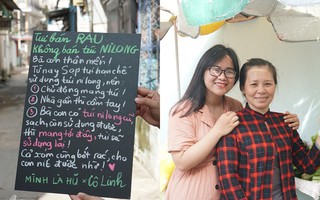 Tui bán RAU
không bán túi NILONG
Bà con thân mến!
Từ nay Sạp tui hạn chế
sử dụng túi nilong, nên
① Chủ động mang túi!
② Nhà gần thì cầm tay!
③ Bà con có túi nilong cũ
sạch, còn sử dụng được,
thì mang tới đây, tui
sử dụng lại!
Cả xóm cùng bớt rác, cho
con nít được nhờ!
MÌNH LÀ HŨ × Cô Linh